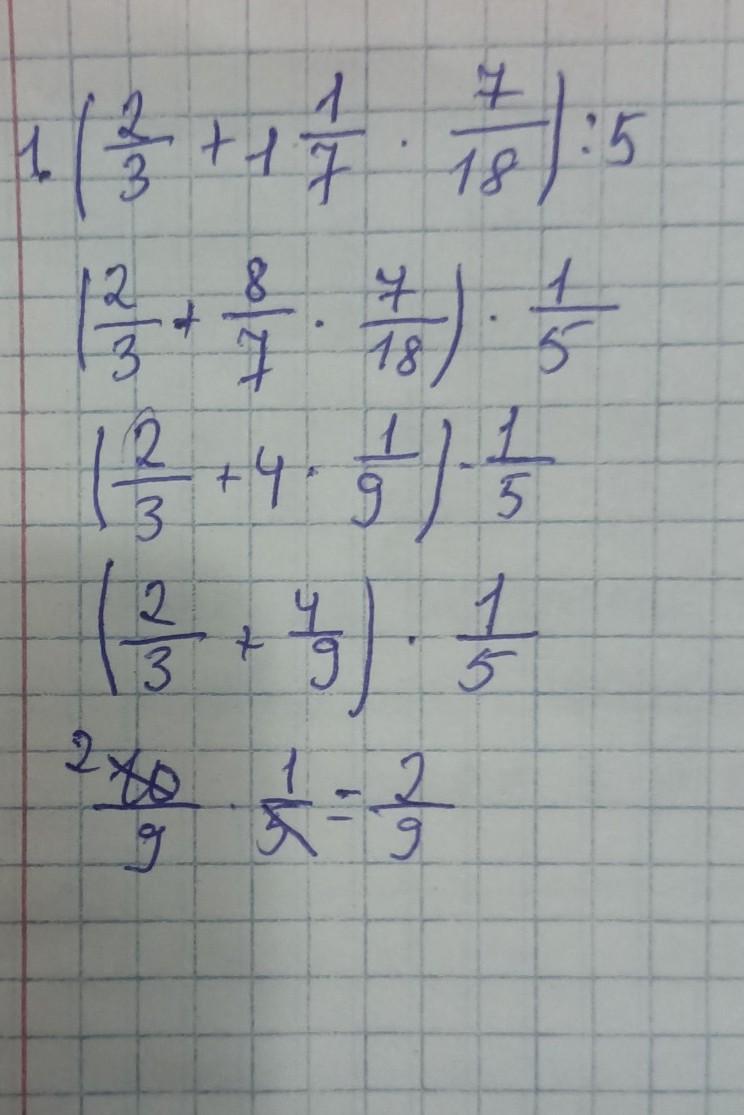 1. (2/3 + 1 1/7 · 7/18) : 5
(2/3 + 8/7 · 7/18) · 1/5
(2/3 + 4 · 1/9) · 1/5
(2/3 + 4/9) · 1/5
2 10/9 · 1/5 = 2/9